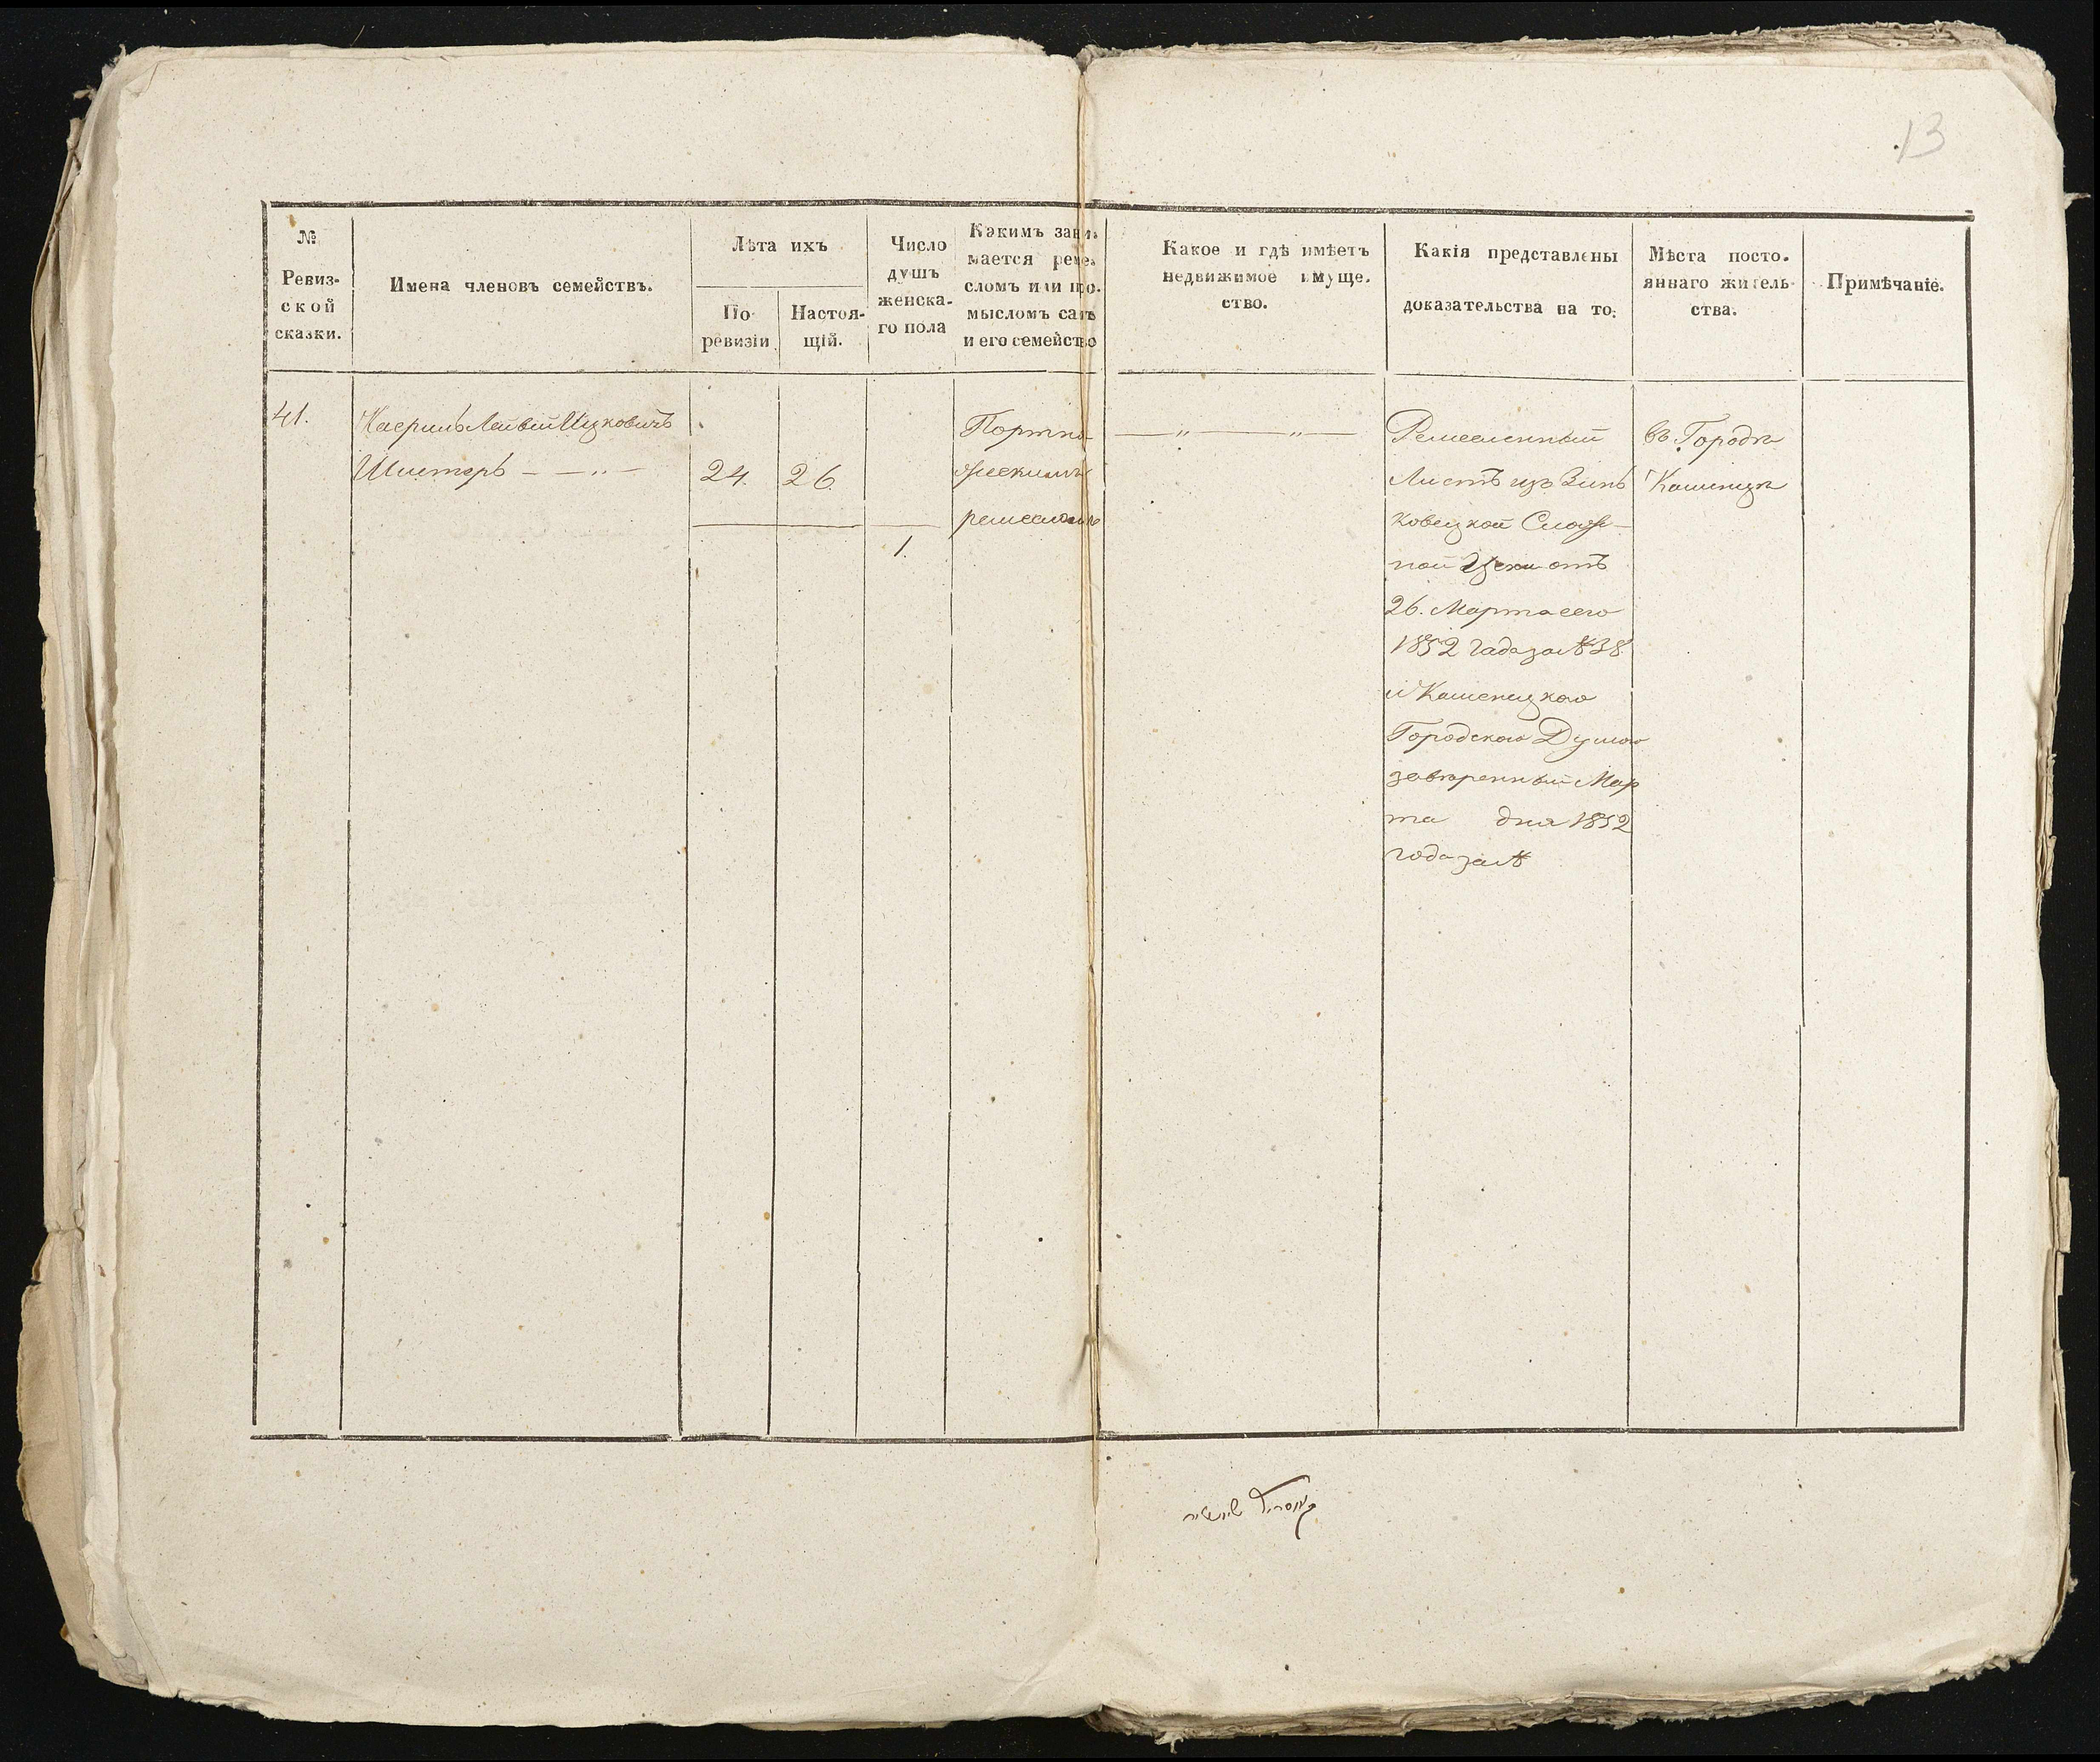 13
№
Ревиз-
ской
сказки.
Имена членовъ семействъ.
Лѣта ихъ
По
ревизіи
Настоя-
щій.
Число
душъ
женска-
го пола
Какимъ зани-
мается реме-
сломъ или про-
мысломъ самъ
и его семейство
Какое и гдѣ имѣетъ
недвижимое имуще-
ство.
Какія представлены
доказательства на то:
Мѣста посто-
яннаго житель-
ства.
Примѣчаніе.
41.
Лейбій Ицковичъ
Шистеръ — — „ —
24. 26
1.
Портно-
жескимъ
ремесломъ
— „ — „ —
Ремесленный
Листъ изъ Зинь
ковецкой Слож-
ной Цехи отъ
26. Марта сего
1852 года за № 38.
и Каменецкою
Городскою Думою
завѣренный Мар
та дня 1852
года за №
въ Городѣ
Каменцѣ